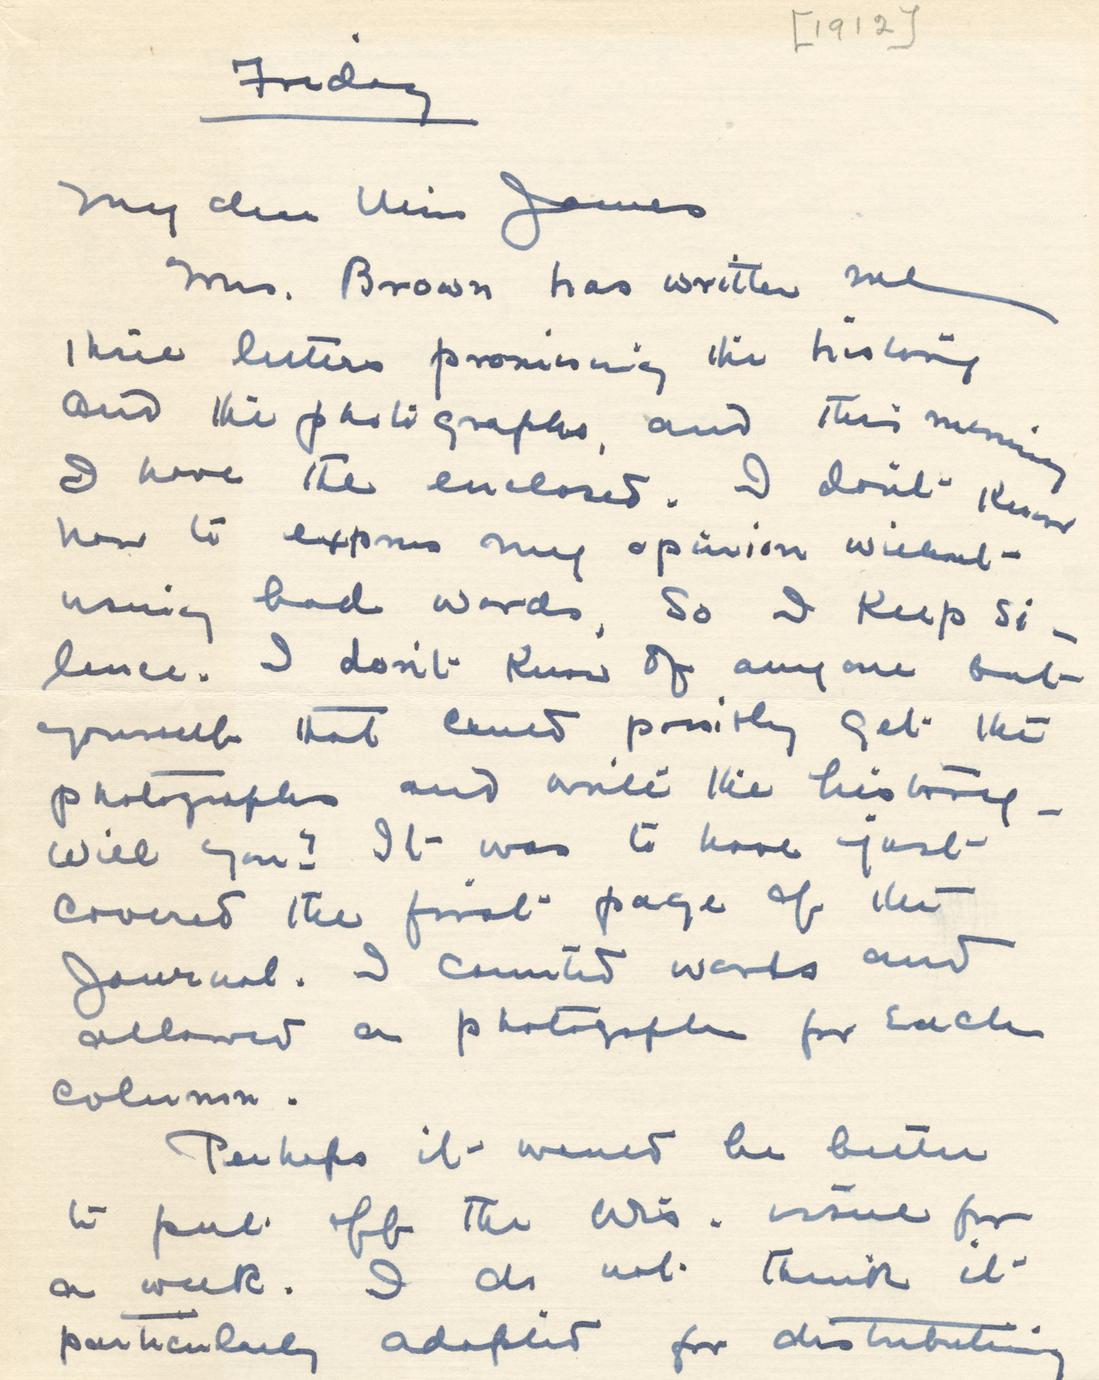 [1912]
Friday
My dear Miss James
Mrs. Brown has written me
three letters promising the history
and the photographs, and this morning
I have the enclosed. I don't know
how to express my opinion without
using bad words, so I keep si-
lence. I don't know of anyone but
yourself that could possibly get the
photographs and write the history -
will you? It was to have just
covered the first page of the
Journal. I counted words and
allowed a photograph for each
column.
Perhaps it would be better
to put off the Wis. issue for
a week. I do not think it
particularly adapted for distributing